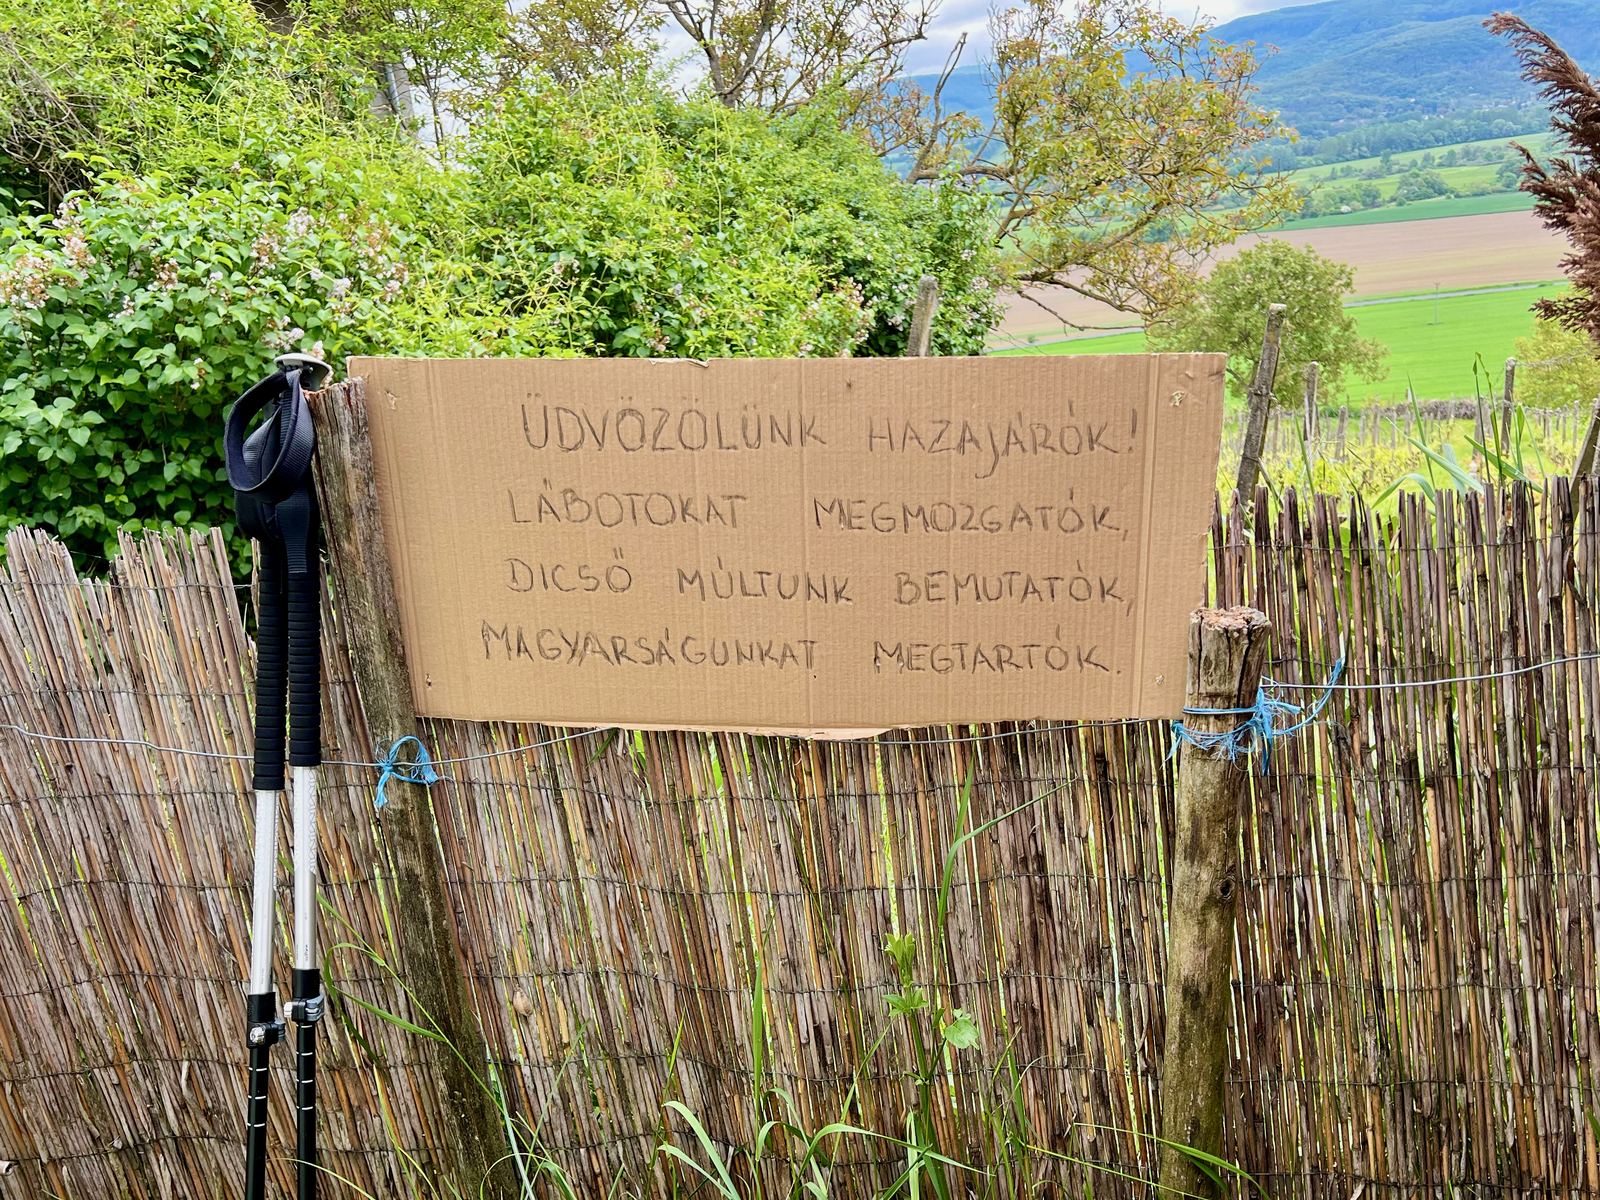 ÜDVÖZÖLÜNK HAZAJÁRÓK!
LÁBOTOKAT MEGMOZGATÓK,
DICSŐ MÚLTUNK BEMUTATÓK,
MAGYARSÁGUNKAT MEGTARTÓK.